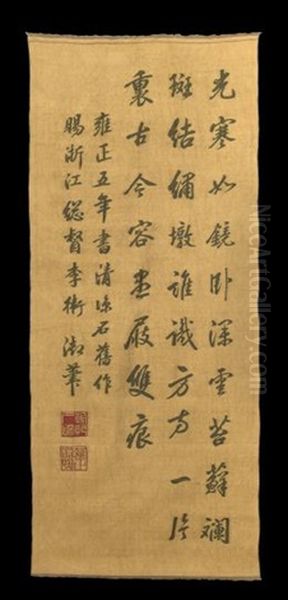 光寒如鏡卧深雲苔蘚斕
斑結繡墩誰識方方一片
裏古今容盡屐雙痕
雍正五年書清涼石舊作
賜浙江總督李衛御筆
NiceArtGallery.com